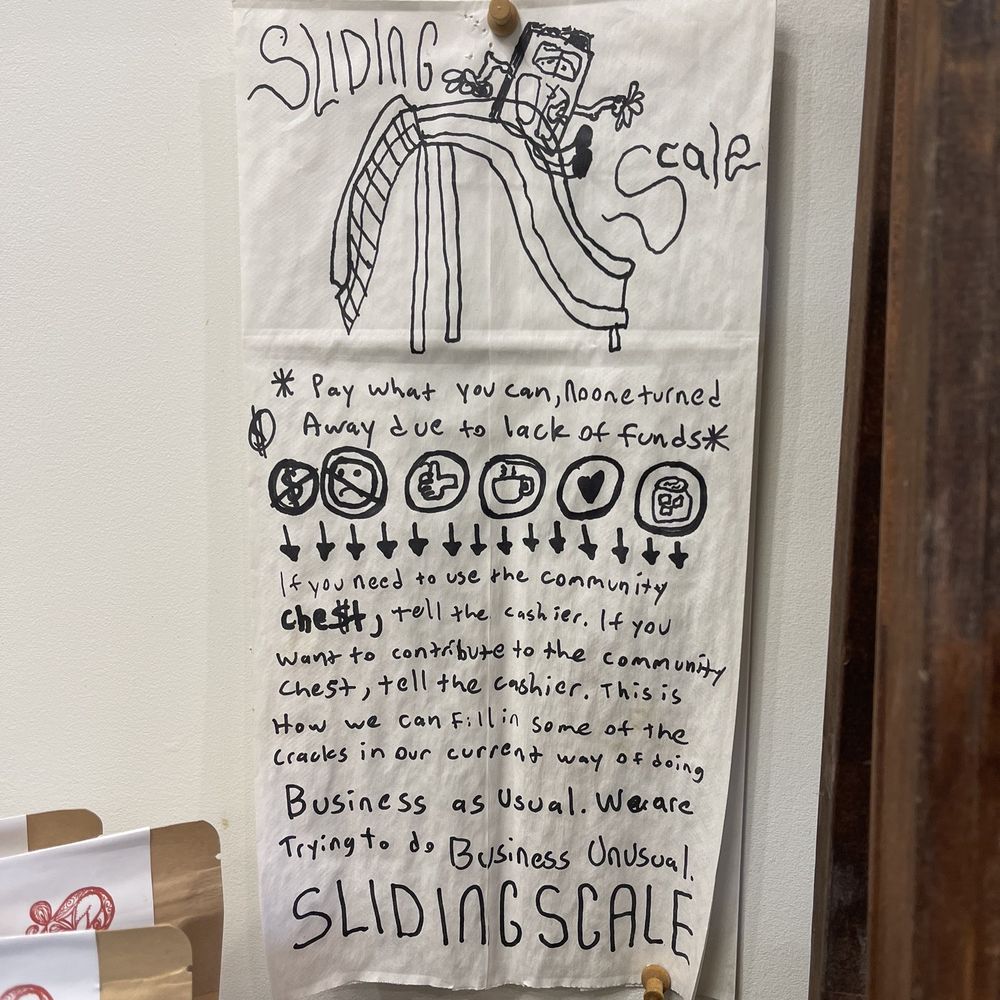 SLIDING
Scale
* Pay what you can, No one turned
$ Away due to lack of funds *
$
If you need to use the community
che$t, tell the cashier. If you
want to contribute to the community
chest, tell the cashier. This is
How we can fill in some of the
cracks in our current way of doing
Business as usual. We are
Trying to do Business Unusual.
SLIDING SCALE